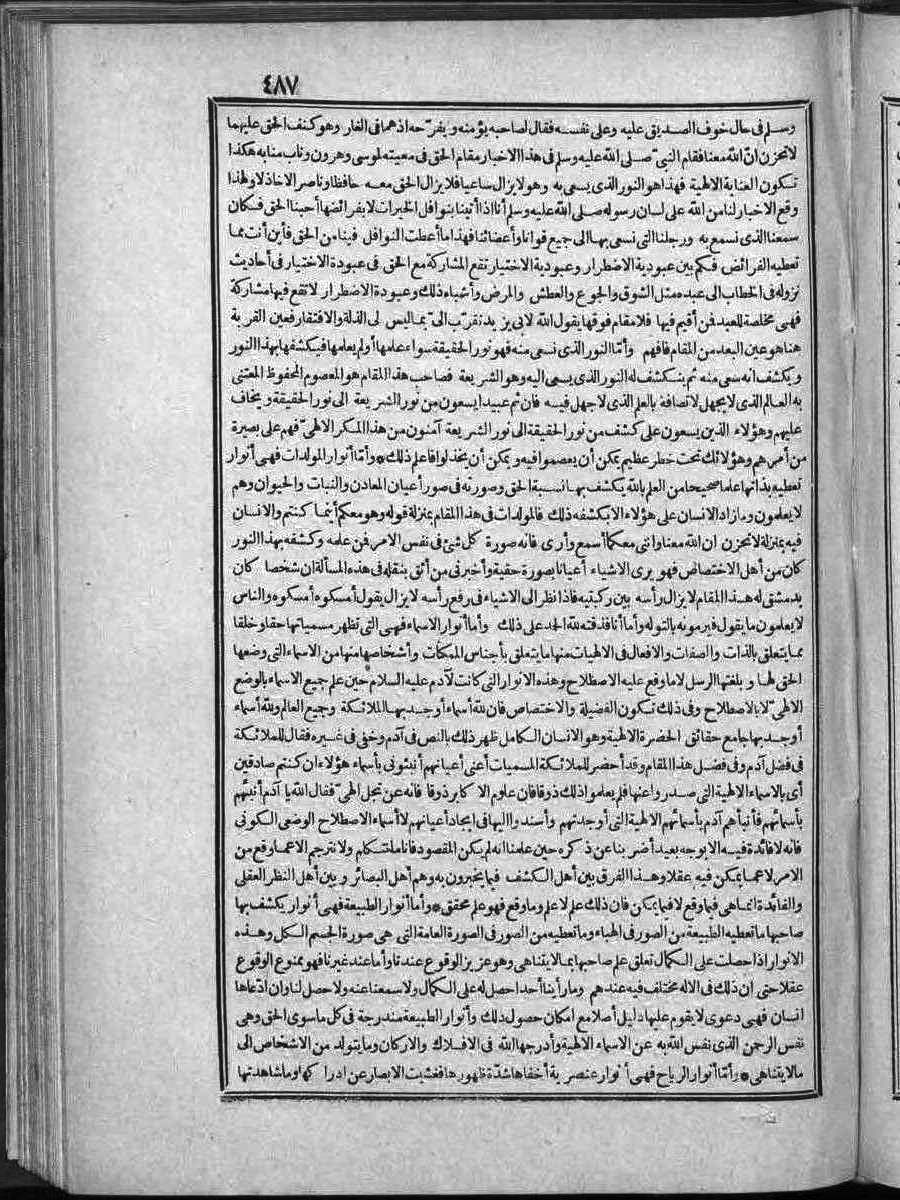 ٤٨٧
وسلم فى حال خوف الصديق عليه وعلى نفسه فقال لصاحبه يؤمنه ويفرّحه اذهما فى الغار وهو كنف الحق عليهما
لا تحزن انّ الله معنا فقام النبىّ صلى الله عليه وسلم فى هذا الاخبار مقام الحق فى معيته لموسى وهرون وناب منابه هكذا
تكون العناية الالهية فهذا هو النور الذى يسعى به وهو لا يزال ساعيا فلا يزال الحق معه حافظا وناصر الاخاذلا ولهذا
وقع الاخبار لنا من الله على لسان رسوله صلى الله عليه وسلم أنا اذا أتينا بنوافل الخيرات لا بفرائضها أحبنا الحق فكان
سمعنا الذى نسمع به ورجلنا التى نسعى بها الى جميع قوانا وأعضائنا فهذا ما أعطت النوافل فينا من الحق فأين أنت مما
تعطيه الفرائض فكم بين عبودية الاضطرار وعبودية الاختيار تقع المشاركة مع الحق فى عبودة الاختيار فى أحاديث
نزوله فى الخطاب الى عبده مثل الشوق والجوع والعطش والمرض وأشباه ذلك وعبودة الاضطرار لا تقع فيها مشاركة
فهى مخلصة للعبد فن أقيم فيها فلا مقام فوقها يقول الله لابى يزيد تقرّب الىّ بما ليس لى الذلة والافتقار فعين القربة
هنا هو عين البعد من المقام فافهم وأمّا النور الذى نسعى منه فهو نور الحقيقة سواء علمها أو لم يعلمها فيكشفها بهذا النور
ويكشف انه سعى منه ثم ينكشف له النور الذى يسعى اليه وهو الشريعة فصاحب هذا المقام هو المعصوم المحفوظ المعتنى
به العالم الذى لا يجهل لاتصافه بالعلم الذى لا جهل فيه فان ثم عبيدا يسعون من نور الشريعة الى نور الحقيقة ويخاف
عليهم وهؤلاء الذين يسعون على كشف من نور الحقيقة الى نور الشريعة آمنون من هذا المكر الالهىّ فهم على بصيرة
من أمرهم وهؤلائك تحت خطر عظيم يمكن أن يعصموا فيه ويمكن أن يخذلوا فاعلم ذلك * وأمّا أنوار المولدات فهى أنوار
تعطيه بذاتها علما صحيحا من العلم بالله يكشف بها نسبة الحق وصورته فى صور أعيان المعادن والنبات والحيوان وهم
لا يعلمون وما زاد الانسان على هؤلاء الا بكشفه ذلك فالمولدات فى هذا المقام بمنزلة قوله وهو معكم أينما كنتم والانسان
فيه بمنزلة لا تحزن ان الله معنا واننى معكما أسمع وأرى فانه صورة كل شئ فى نفس الامر فن علمه وكشفه بهذا النور
كان من أهل الاختصاص فهو يرى الاشياء أعيانا بصورة حقية وأخبرنى من أثق بنقله فى هذه المسألة ان شخصا كان
بدمشق له هذا المقام لا يزال رأسه بين ركبتيه فاذا نظر الى الاشياء فى رفع رأسه لا يزال يقول أمسكوه أمسكوه والناس
لا يعلمون ما يقول فيرمونه بالتوله وأما أنا فذقته لله الحمد على ذلك وأما أنوار الاسماء فهى التى تظهر مسمياتها حقا وخلقا
مما يتعلق بالذات والصفات والافعال فى الالهيات منها ما يتعلق بأجناس الممكنات وأشخاصها منها من الاسماء التى وضعها
الحق لها وبلغتها الرسل لا ما وقع عليه الاصطلاح وهذه الانوار التى كانت لآدم عليه السلام حين علم جميع الاسماء بالوضع
الالهىّ لا بالاصطلاح وفى ذلك تكون الفضيلة والاختصاص فان لله أسماء أوجد بها الملائكة وجميع العالم ولله أسماء
أوجد بها جامع حقائق الحضرة الالهية وهو الانسان الكامل ظهر ذلك بالنص فى آدم وخفى فى غيره فقال للملائكة
فى فضل آدم وفى فضل هذا المقام وقد أحضر للملائكة المسميات أعنى أعيانهم أنبئونى بأسماء هؤلاء ان كنتم صادقين
أى بالاسماء الالهية التى صدروا عنها فلم يعلموا ذلك ذوقا فان علوم الاكابر ذوقا فانه عن تجل الهىّ فقال الله يا آدم أنبئهم
بأسمائهم فأنبأهم آدم بأسمائهم الالهية التى أوجدتهم وأسندوا اليها فى ايجاد أعيانهم لا أسماء الاصطلاح الوضعى الكونى
فانه لا فائدة فيه الا بوجه بعيد أضربنا عن ذكره حين علمنا انه لم يكن المقصود فانا ما نتكلم ولا نترجم الا عما وقع من
الامر لا عما يمكن فيه عقلا وهذا الفرق بين أهل الكشف فيما يخبرون به وهم أهل البصائر وبين أهل النظر العقلى
والفائدة انما هى فيما وقع لا فيما يمكن فان ذلك علم لا علم وما وقع فهو علم محقق * وأما أنوار الطبيعة فهى أنوار يكشف بها
صاحبها ما تعطيه الطبيعة من الصور فى الهباء وما تعطيه من الصور فى الصورة العامة التى هى صورة الجسم الكل وهذه
الانوار اذا حصلت على الكمال تعلق علم صاحبها بما لا يتناهى وهو عزيز الوقوع عندنا وأما عند غيرنا فهو ممنوع الوقوع
عقلا حتى ان ذلك فى الاله مختلف فيه عندهم وما رأينا أحدا حصل له على الكمال ولا سمعنا عنه ولا حصل لنا وان ادّعاها
انسان فهى دعوى لا يقوم عليها دليل أصلا مع امكان حصول ذلك وأنوار الطبيعة مندرجة فى كل ما سوى الحق وهى
نفس الرحمن الذى نفس الله به عن الاسماء الالهية وأدرجها الله فى الافلاك والاركان وما يتولد من الاشخاص الى
ما لا يتناهى * وأمّا أنوار الرياح فهى أنوار عنصرية أخفاها شدّة ظهورها فغشيت الابصار عن ادراكها وما شاهدتها